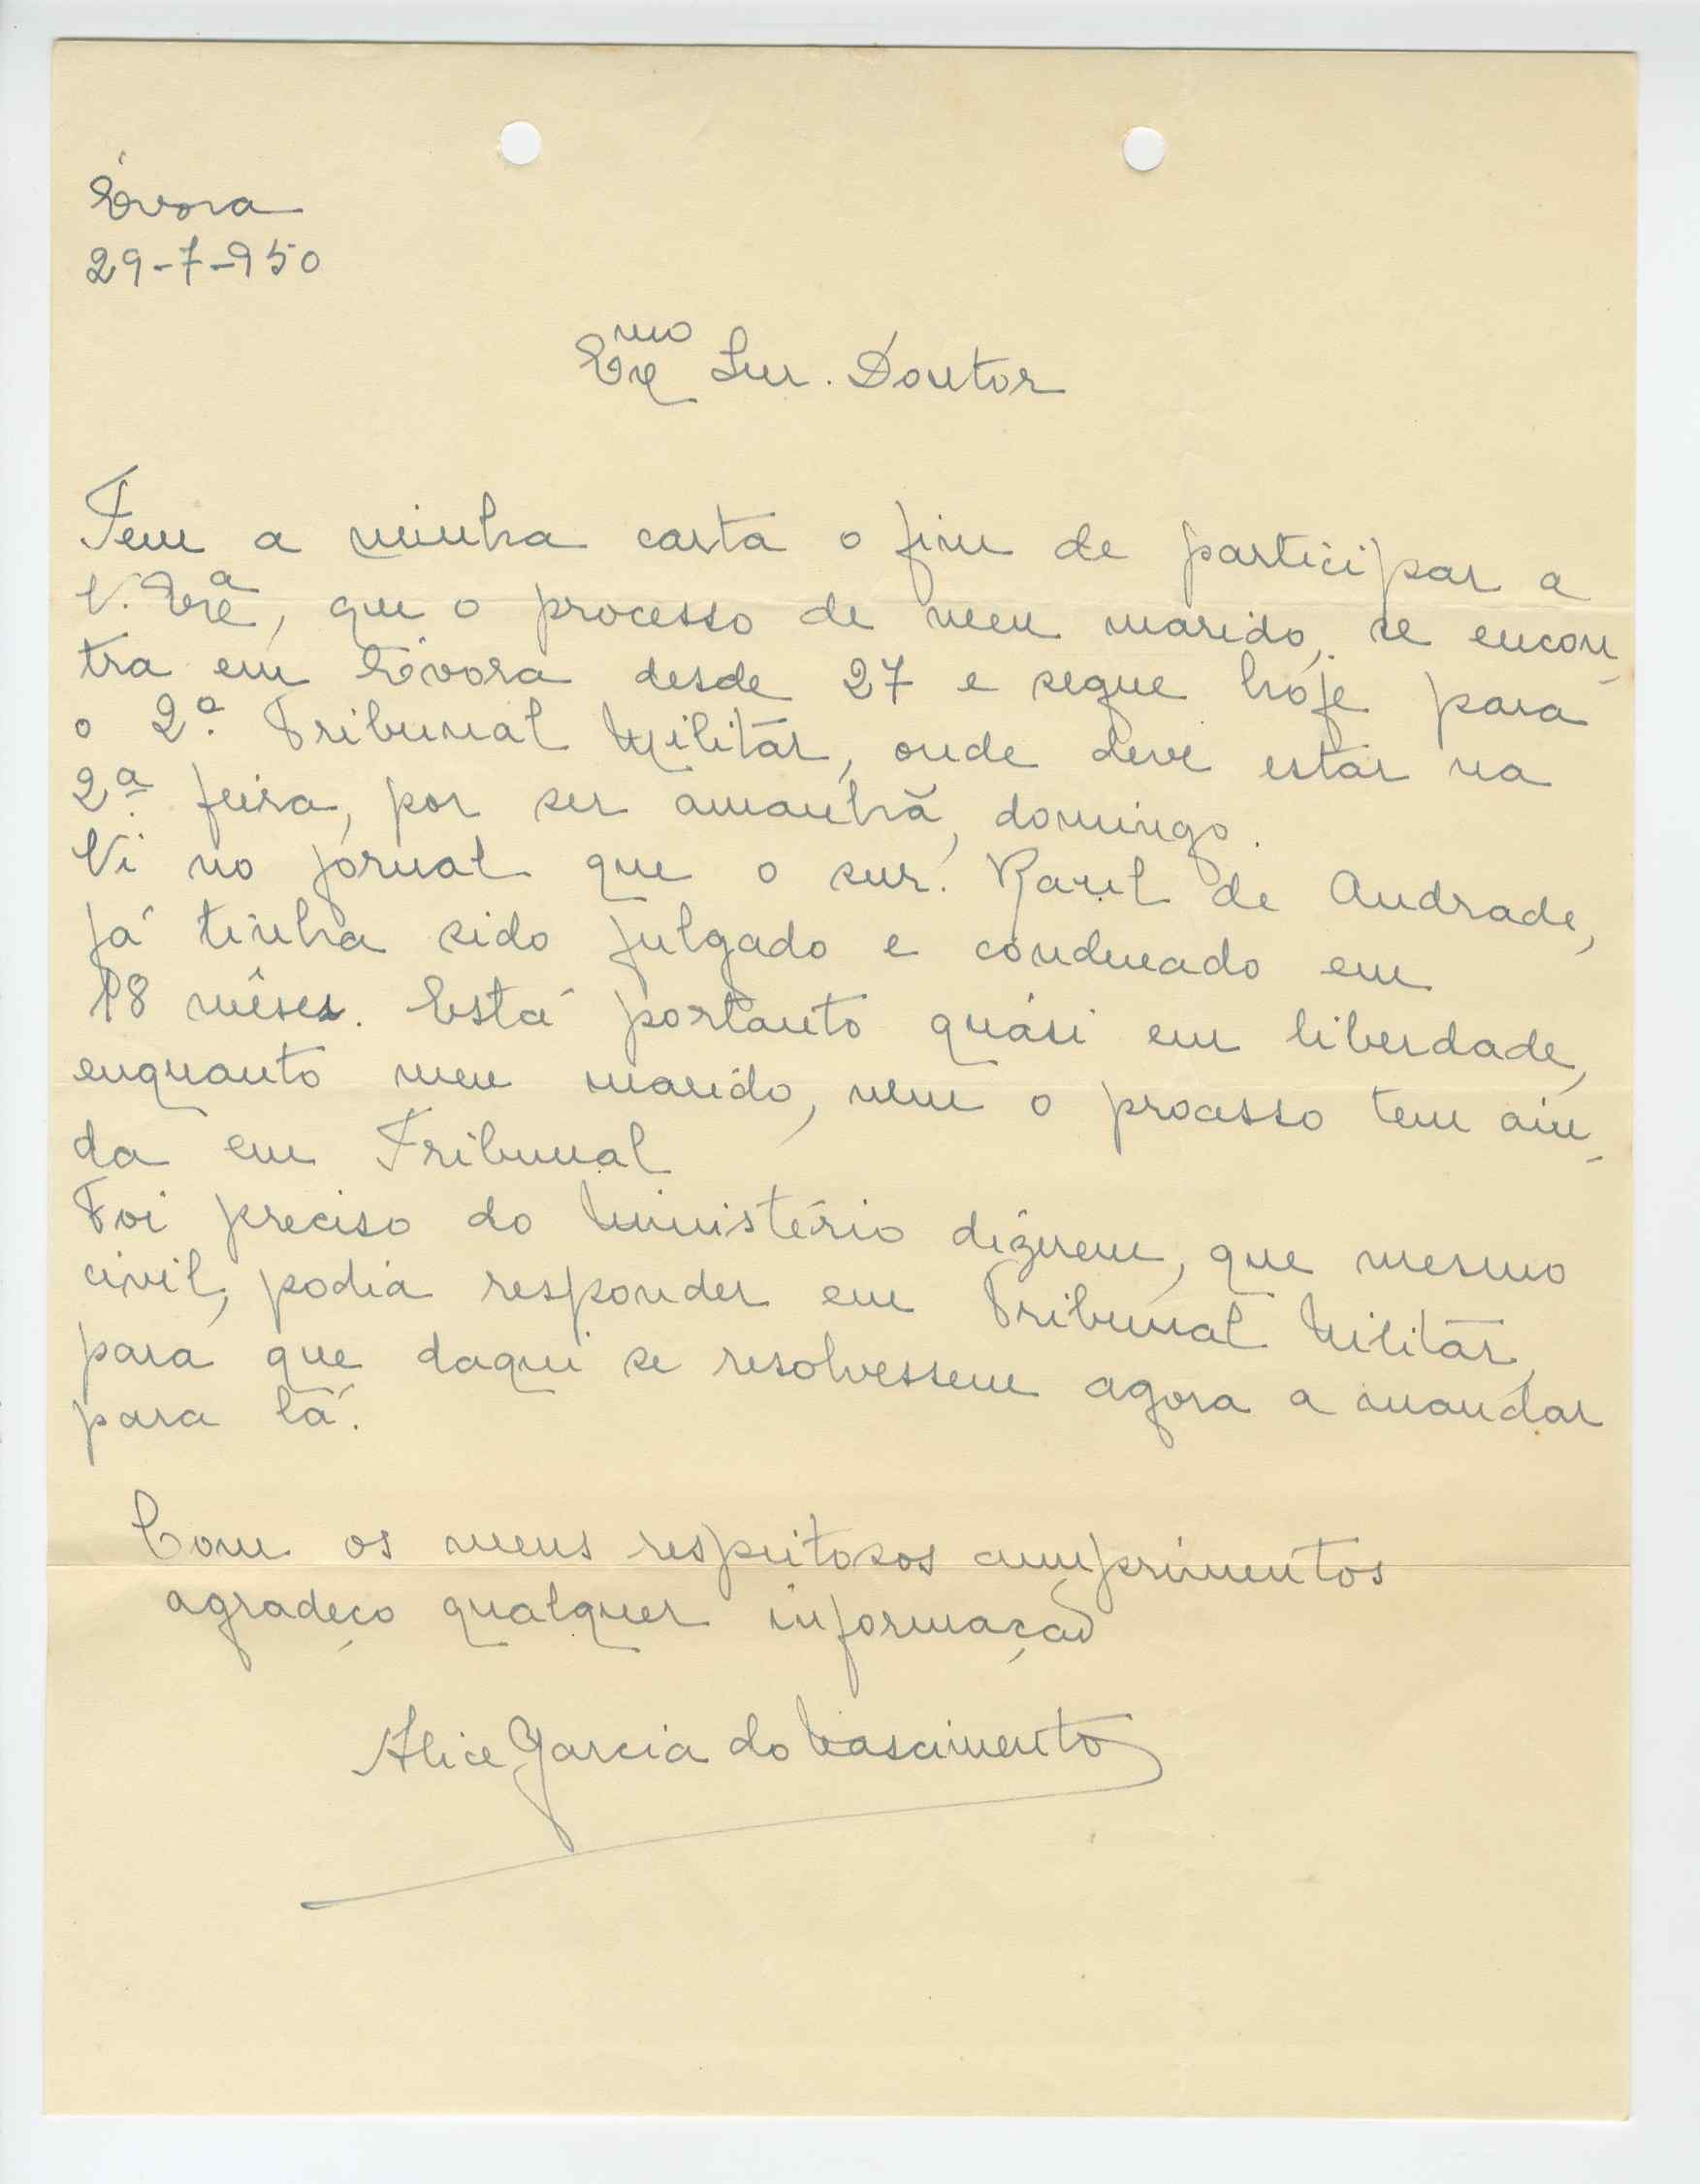 Évora
29-7-950
Exmo Snr. Doutor
Tem a minha carta o fim de participar a
V. Exa, que o processo de meu marido, se encon-
tra em Évora desde 27 e segue hoje para
o 2º. Tribunal Militar, onde deve estar na
2ª. feira, por ser amanhã, domingo.
Vi no jornal que o snr. Raul de Andrade,
já tinha sido julgado e condenado em
18 mêses. Está portanto quási em liberdade,
enquanto meu marido, nem o processo tem ain-
da em Tribunal
Foi preciso do Ministério dizerem, que mesmo
civil, podia responder em Tribunal Militar,
para que daqui se resolvessem agora a mandar
para lá.
Com os meus respeitosos cumprimentos
agradeço qualquer informação
Alice Garcia do Nascimento